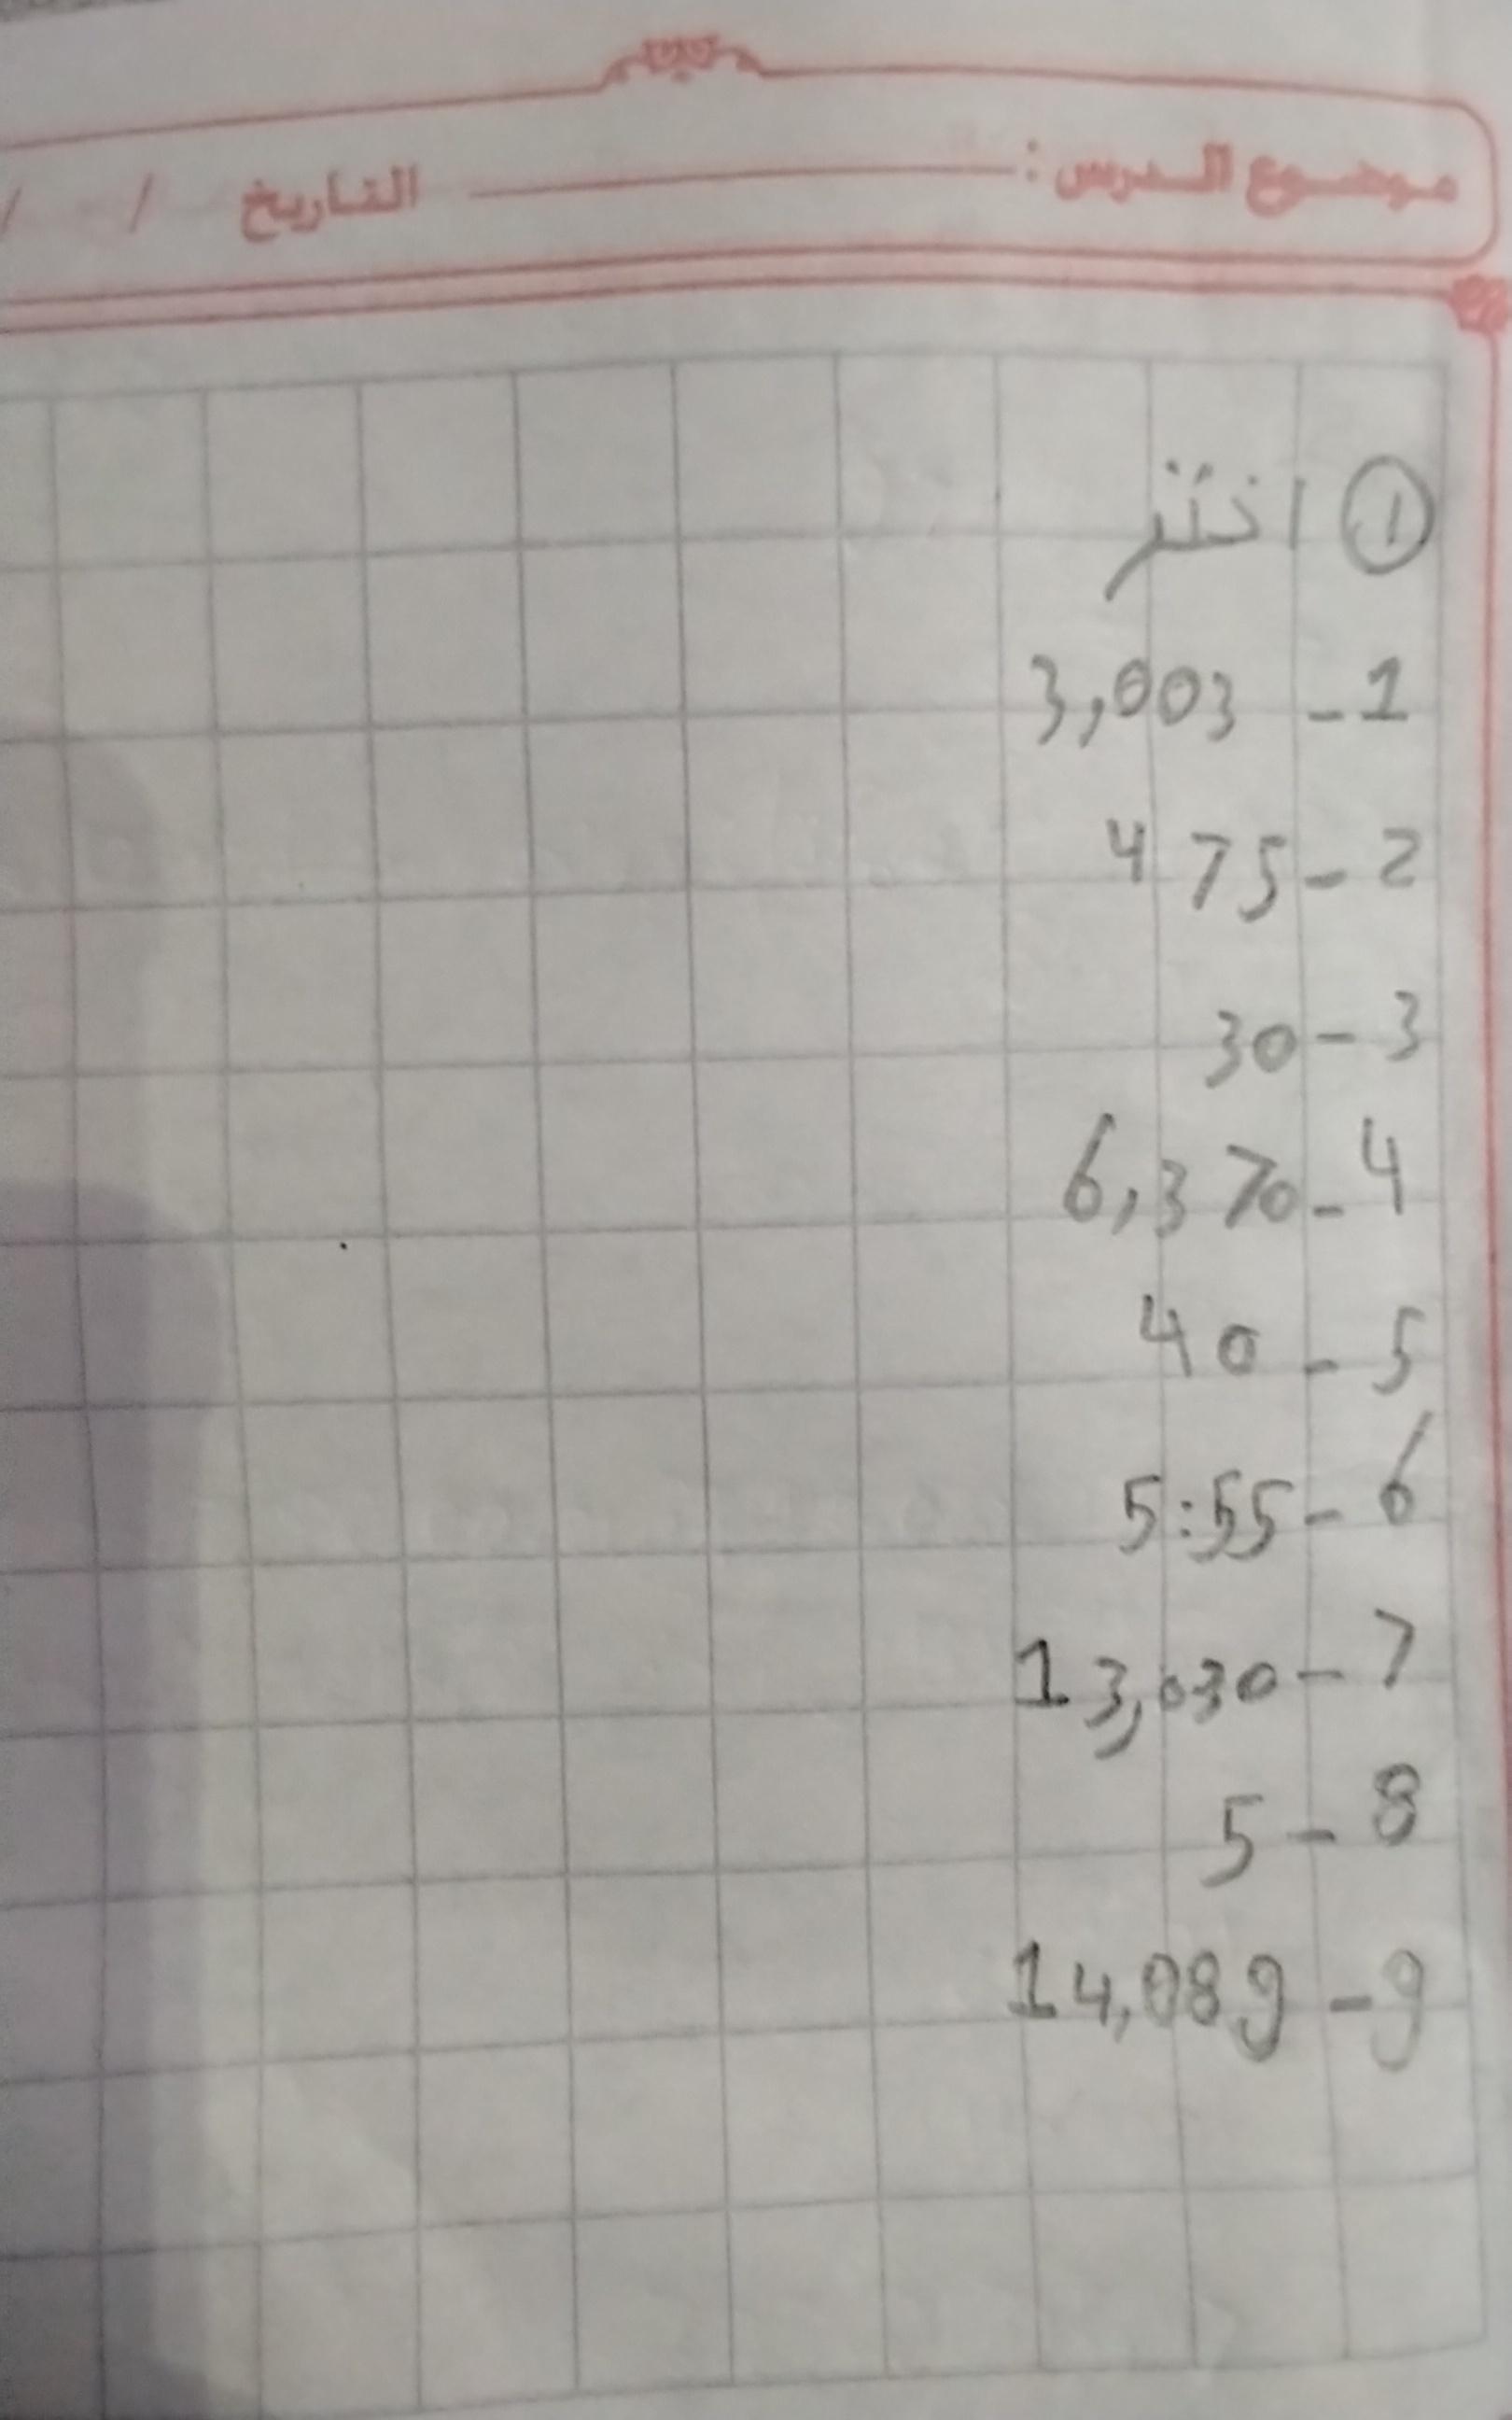 موضوع الدرس : التاريخ / /
① اختر
1 - 3,003
2 - 475
3 - 30
4 - 6,370
5 - 40
6 - 5:55
7 - 13,030
8 - 5
9 - 14,089